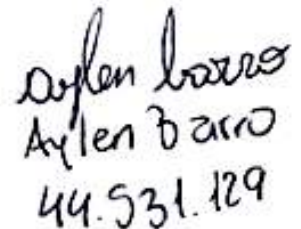 Aylen barro
Aylen Barro
44.531.129